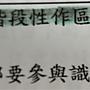 階段性作區
都要參與識